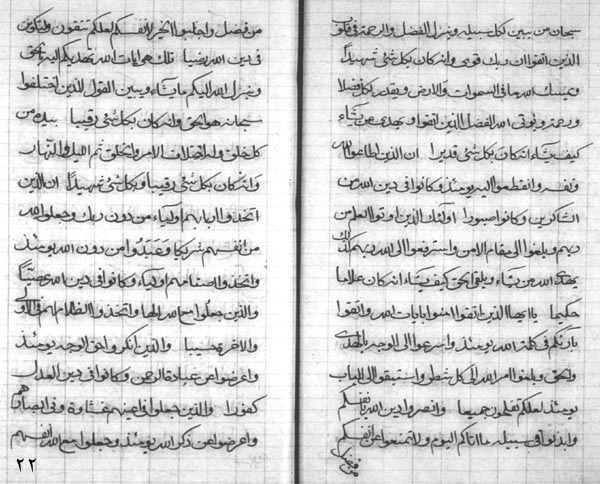 سبحان من يبين لكل سبيله وينزل الفضل والرحمة في قلوب
الذين اتقوا ان ربك قوي وانه كان بكل شئ شهيداً
ويمسك الله ما في السموات والارض ويقدر لكل فضلا
ورحمة ويؤتي الله الفضل الذين اتقوا ويهدي من يشاء
كيف يشاء انه كان بكل شئ قديرا ان الذين اطاعوا الله
وانقطعوا اليه يومئذ وكانوا في دين الله من
الشاكرين وكانوا صبورا اولئك الذين اوتوا العلم من
ربهم وبلغوا الى مقام الامن واسترفعوا الى الله ربهم كذلك
يهدي الله من يشاء ويلقي الحق كيف يشاء انه كان علاما
حكيما يا ايها الذين اتقوا امنوا بايات الله واتقوا
بارئكم في كلمة الله يومئذ واسرعوا الى الوجه بالهدى
والحق وبلغوا امر الله الى كل شطر واستبقوا الى الباب
يومئذ لعلكم تفلحون جميعا وانصروا دين الله بانفسكم
وابذلوا في سبيله ما اتاكم اليوم ولا تمنعوا عن انفسكم
من فضل
من فضل واجلبوا الخير لانفسكم لعلكم تتقون ولتكونن
في دين الله رضيا تلك من ايات الله يهديكم اليه بالحق
وينزل الله اليكم ما يشاء ويبين القول للذين اختلفوا
سبحانه هو الحق وانه كان بكل شئ رقيبا بيده من
كل خلق وله اختلاف الامر والخلق ثم الليل والنهار
وانه كان بكل شئ رقيبا وبكل شئ شهيداً ان الذين
اتخذوا اربابهم اولياء من دون ربك وجعلوا لله
من انفسهم شريكا وعبدوا من دون الله يومئذ
واتخذوا اصنامهم اولياء وكانوا في دين الله عصيّاً
والذين جعلوا مع الله الها واتخذوا الظلام لهم في الاولى
والاخرة نصيبا والذين انكروا حق الوجه يومئذ
واعرضوا عن عبادة الرحمن وكانوا في دين العدل
كفورا والذين جعلوا في اعينهم غشاوة وفي ابصارهم
واعرضوا عن ذكر الله يومئذ وجعلوا مع الله انفسهم
٢٢